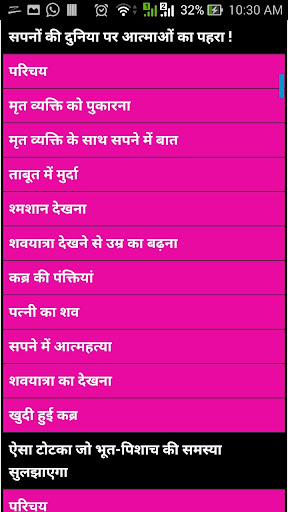 32% 10:30 AM
सपनों की दुनिया पर आत्माओं का पहरा !
परिचय
मृत व्यक्ति को पुकारना
मृत व्यक्ति के साथ सपने में बात
ताबूत में मुर्दा
श्मशान देखना
शवयात्रा देखने से उम्र का बढ़ना
कब्र की पंक्तियां
पत्नी का शव
सपने में आत्महत्या
शवयात्रा का देखना
खुदी हुई कब्र
ऐसा टोटका जो भूत-पिशाच की समस्या
सुलझाएगा
परिचय